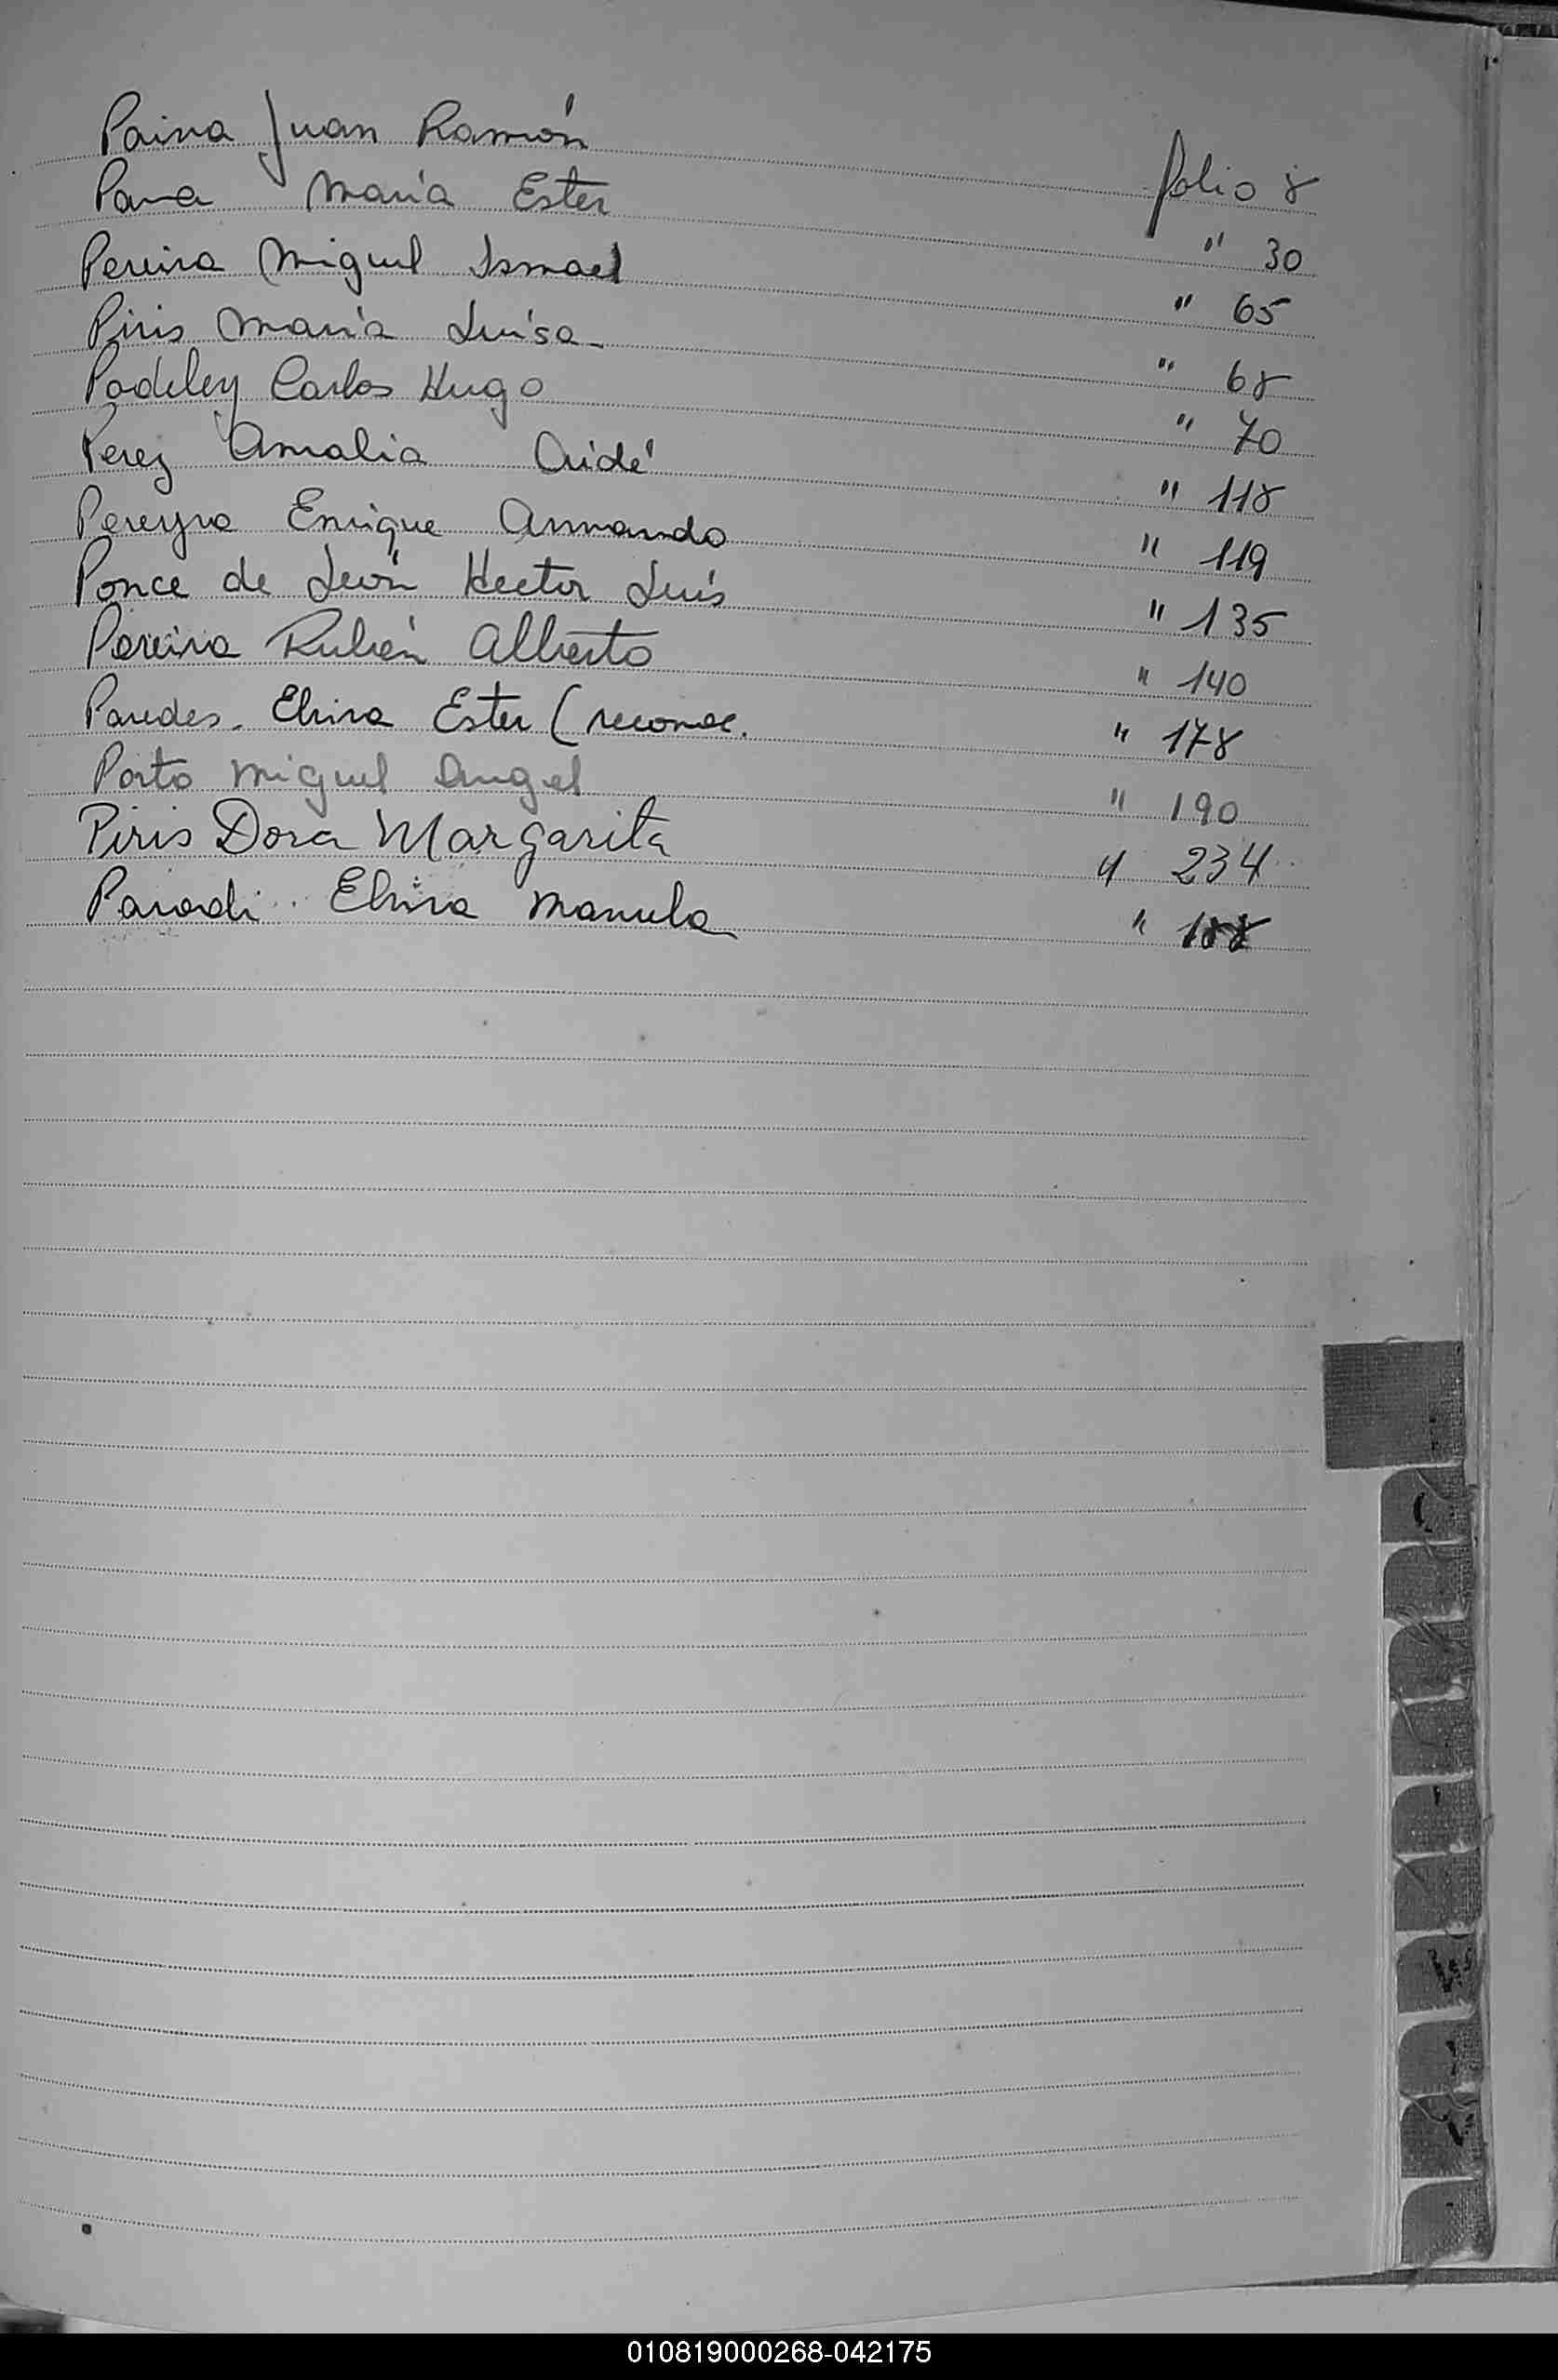 Paiva Juan Ramón folio 8
Pava María Ester " 30
Pereira Miguel Ismael " 65
Piris María Luisa - " 68
Podeley Carlos Hugo " 70
Perez Amalia Aidé " 118
Pereyra Enrique Armando " 119
Ponce de León Hector Luís " 135
Pereira Rubén Alberto " 140
Paredes - Elvira Ester (reconoc. " 178
Porto Miguel Angel " 190
Piris Dora Margarita " 234
Parodi Elvira Manuela " 188
010819000268-042175